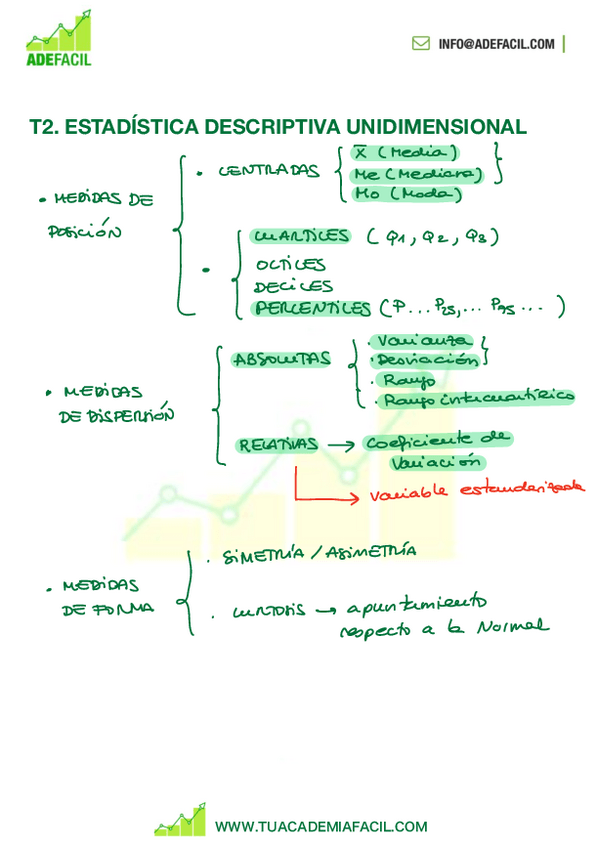 ADEFACIL
INFO@ADEFACIL.COM
T2. ESTADÍSTICA DESCRIPTIVA UNIDIMENSIONAL
• MEDIDAS DE
POSICIÓN
• CENTRADAS
X̅ (Media)
Me (Mediana)
Mo (Moda)
•
CUARTILES (Q1, Q2, Q3)
OCTILES
DECILES
PERCENTILES (P... P25,... P75 ... )
• MEDIDAS
DE DISPERSIÓN
ABSOLUTAS
. Varianza
. Desviación
. Rango
. Rango intercuartílico
RELATIVAS → Coeficiente de
Variación
→ variable estandarizada
• MEDIDAS
DE FORMA
. SIMETRÍA / ASIMETRÍA
. CURTOSIS → apuntamiento
respecto a la Normal
WWW.TUACADEMIAFACIL.COM